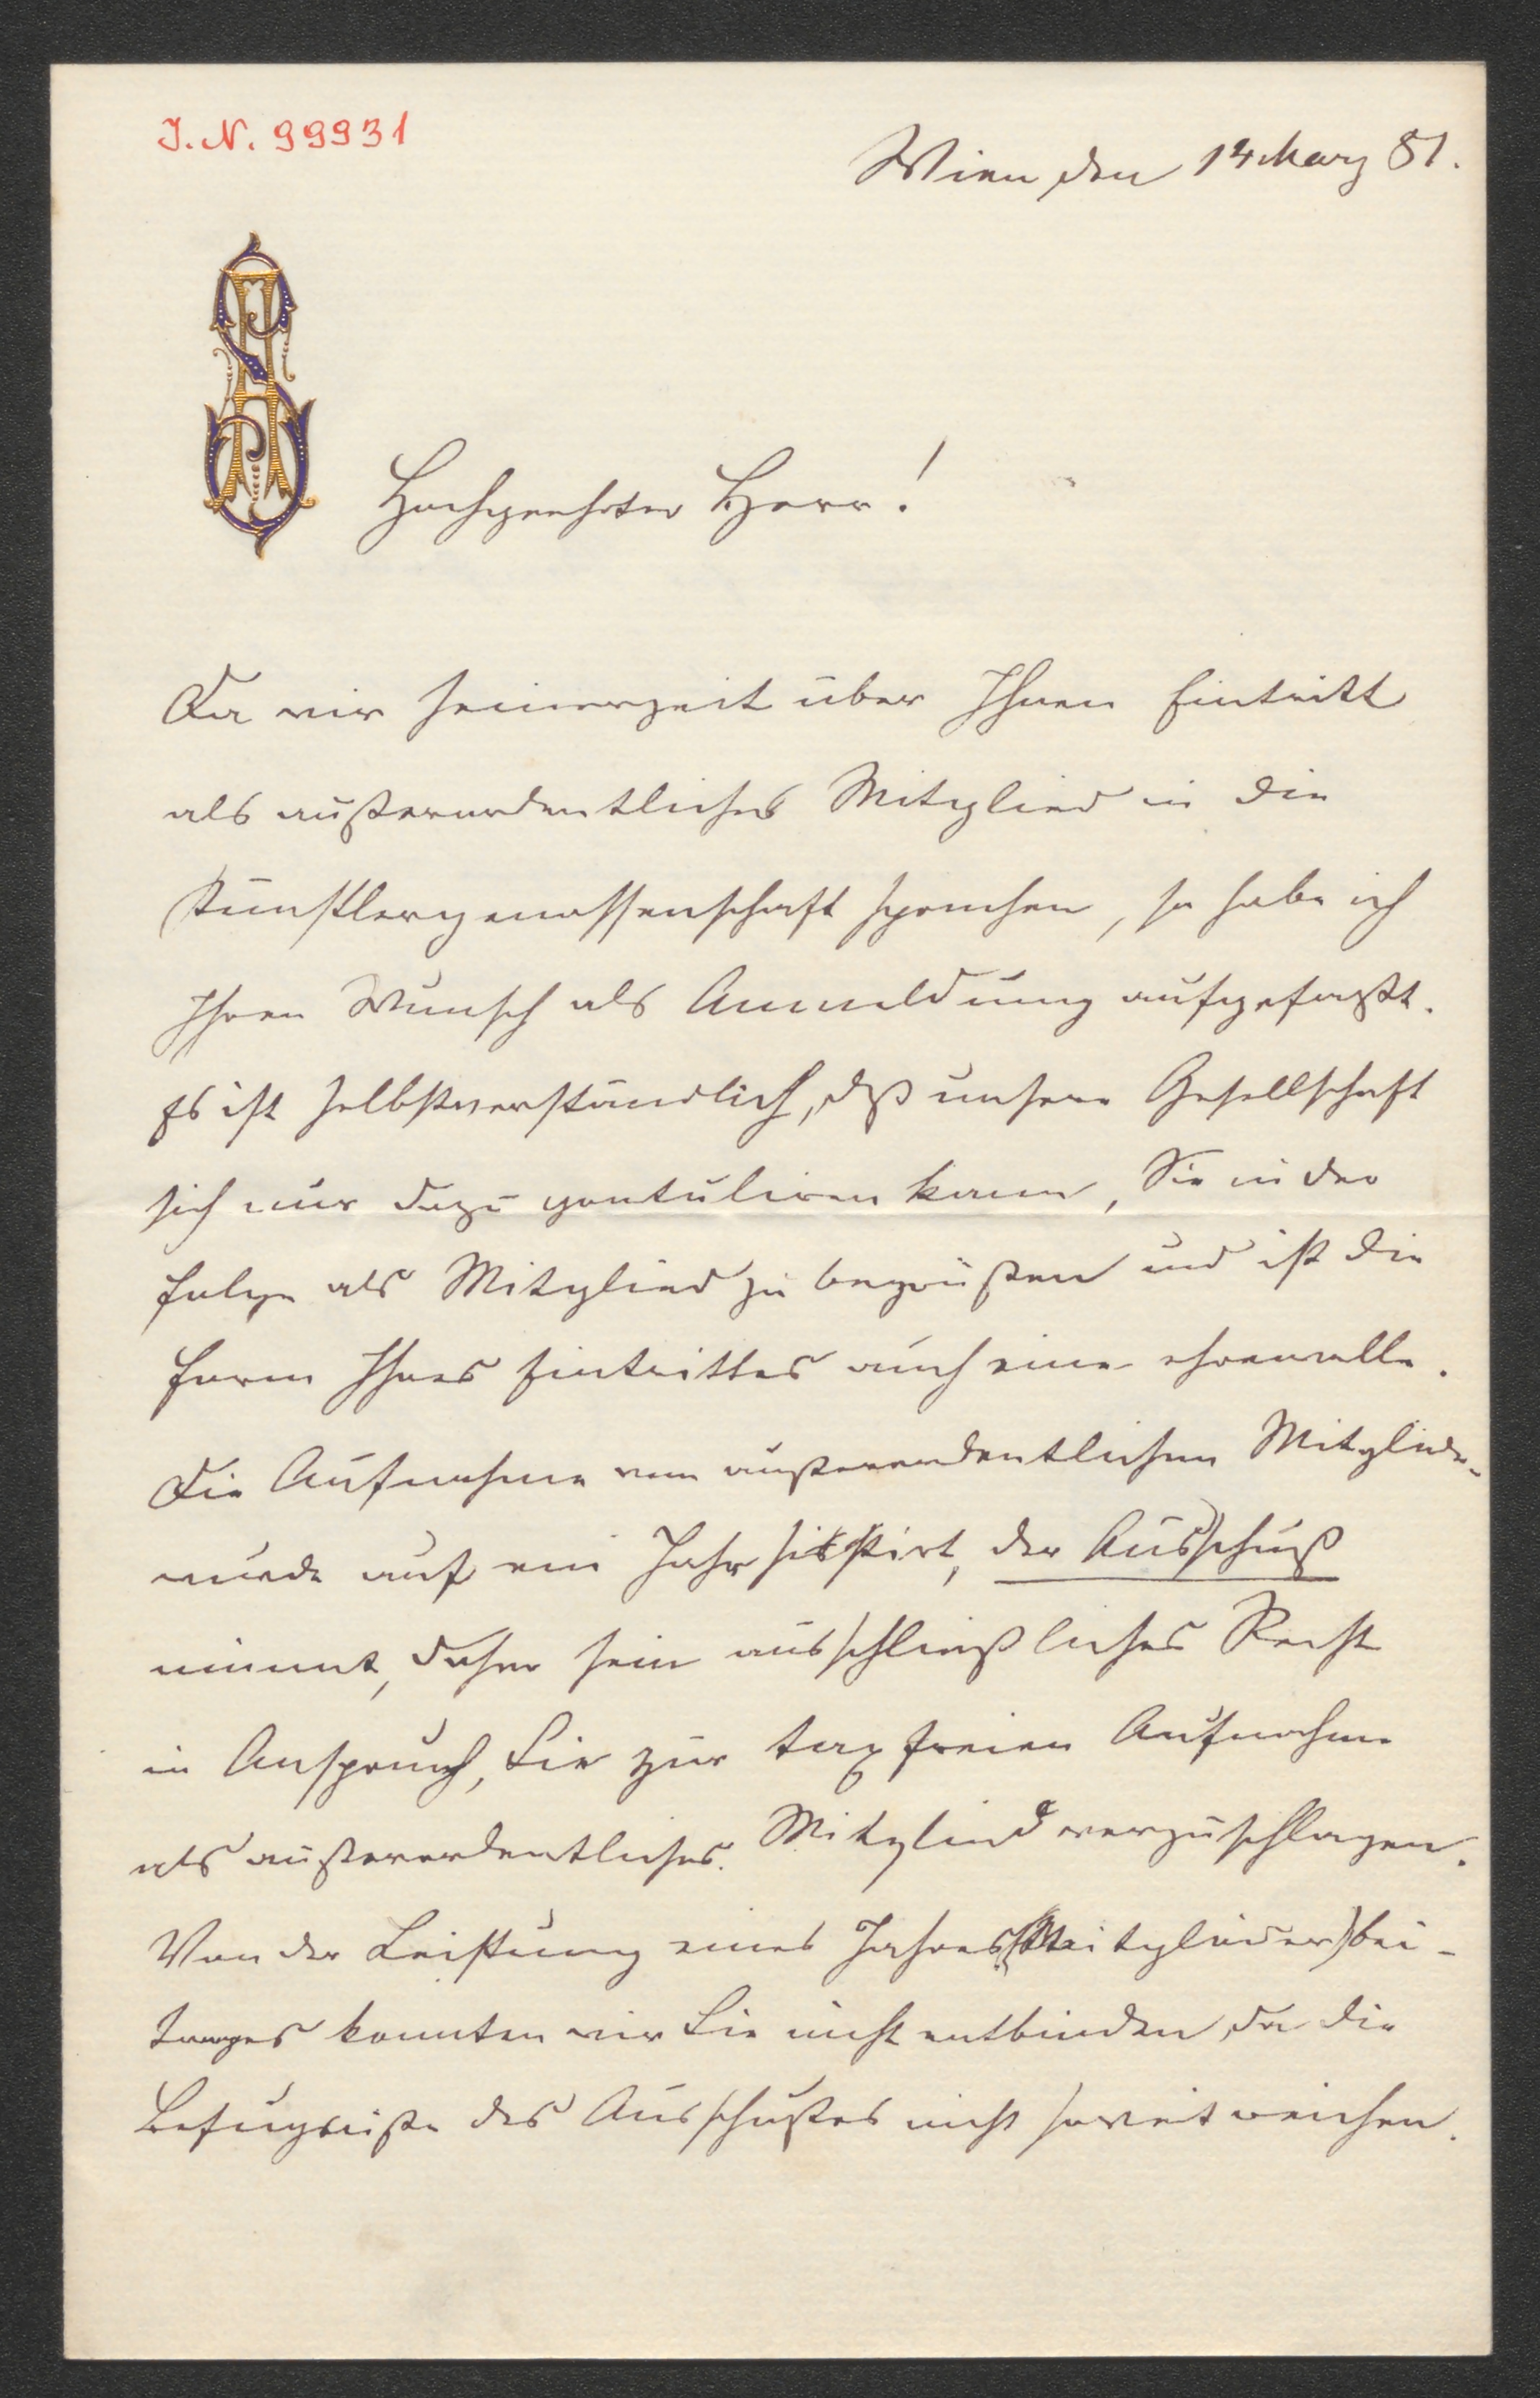 J. N. 99931
Wien den 14 März 81.
Hochgeehrter Herr!
Da wir seinerzeit über Ihren Eintritt
als außerordentliches Mitglied in die
Künstlergenossenschaft sprachen, so habe ich
Ihren Wunsch als Anmeldung aufgefaßt.
Es ist selbstverständlich, daß unsere Gesellschaft
sich nur dazu gratuliren kann, Sie in der
Folge als Mitglied zu begrüßen und ist die
Form Ihres Eintrittes auch eine ehrenvolle.
Die Aufnahme von außerordentlichen Mitglieder
wurde auf ein Jahr sistirt, der Ausschuß
nimmt, daher sein ausschließliches Recht
in Anspruch, Sie zur taxfreien Aufnahme
als außerordentliches Mitglied vorzuschlagen.
Von der Leistung eines Jahres (Mitglieder) bei-
trages konnten wir Sie nicht entbinden, da die
Befugnisse des Ausschußes nicht soweit reichen.